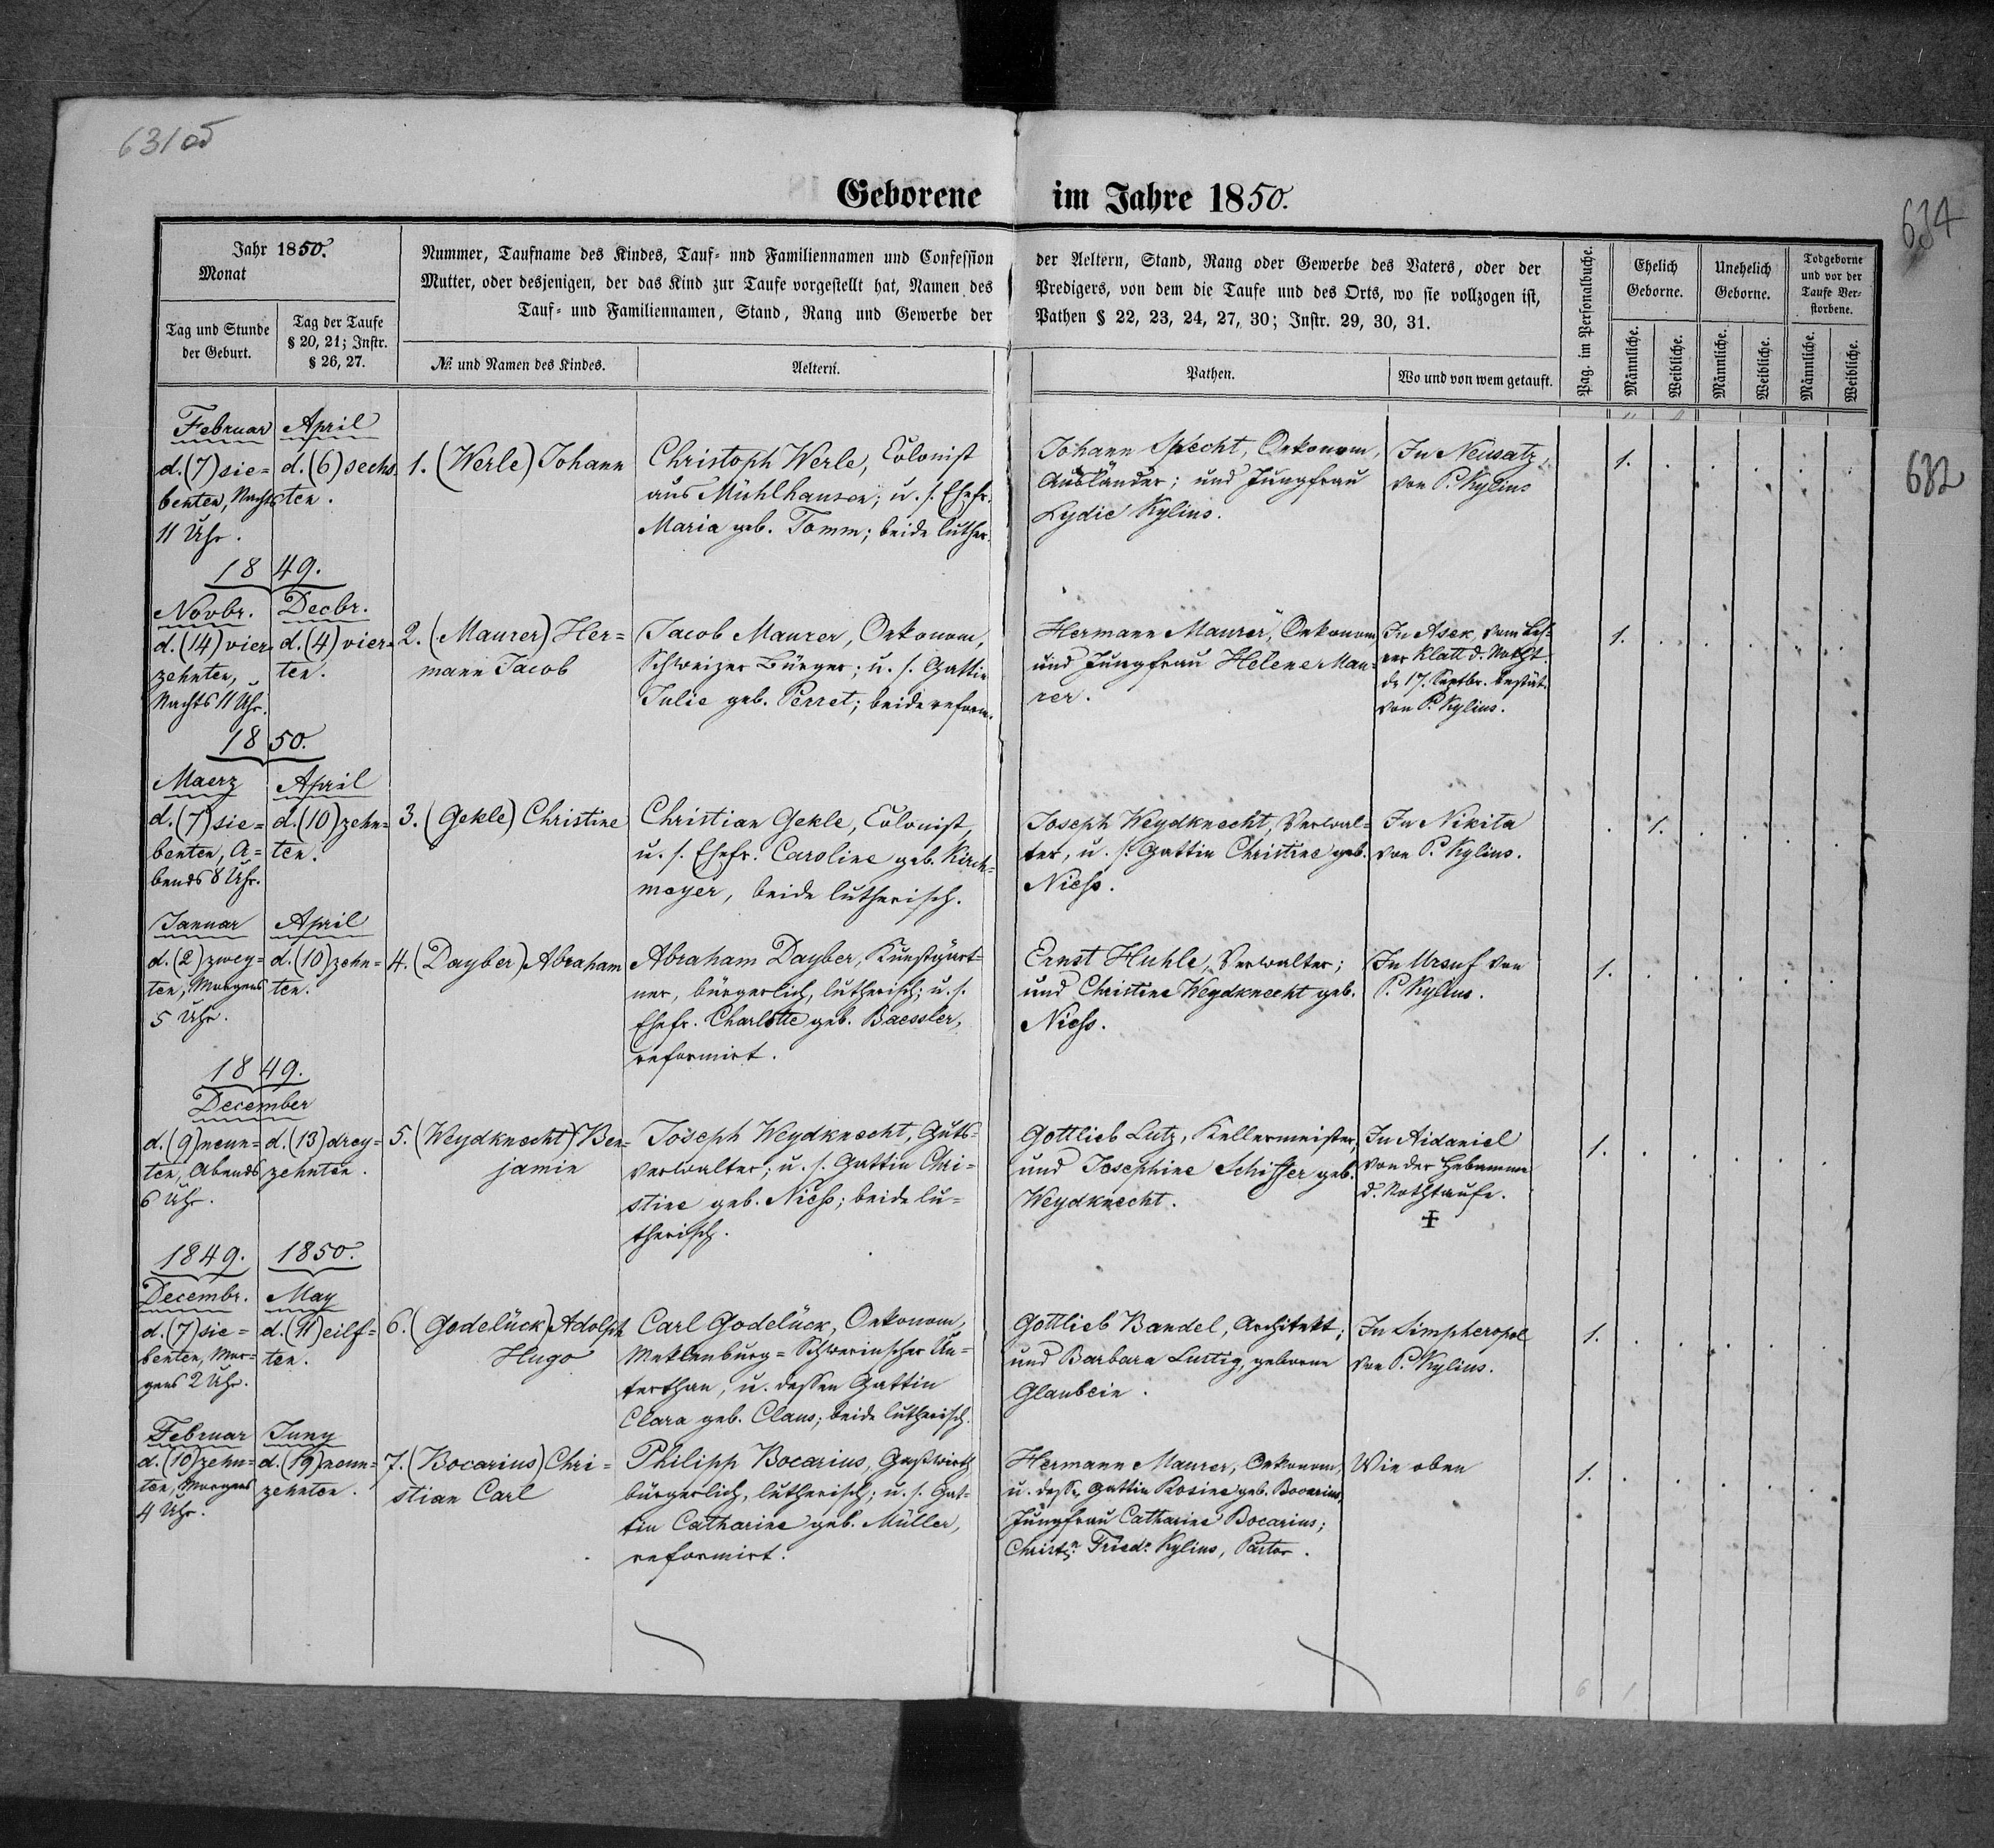 631 od
Geborene im Jahre 1850.
634
632
Jahr 1850.
Monat
Tag und Stunde
der Geburt.
Tag der Taufe
§ 20, 21; Instr.
§ 26, 27.
Nummer, Taufname des Kindes, Tauf- und Familiennamen und Confession
Mutter, oder desjenigen, der das Kind zur Taufe vorgestellt hat, Namen des
Tauf- und Familiennamen, Stand, Rang und Gewerbe der
№ und Namen des Kindes.
Aeltern.
der Aeltern, Stand, Rang oder Gewerbe des Vaters, oder der
Predigers, von dem die Taufe und des Orts, wo sie vollzogen ist,
Pathen § 22, 23, 24, 27, 30; Instr. 29, 30, 31.
Pathen.
Wo und von wem getauft.
Pag. im Personalbuche.
Ehelich
Geborne.
Unehelich
Geborne.
Todgeborne
und vor der
Taufe Ver-
storbene.
Männliche.
Weibliche.
Männliche.
Weibliche.
Männliche.
Weibliche.
Februar
d. (7) sie=
benten, Nachts
11 Uhr.
April
d. (6) sechs-
ten.
1. (Werle) Johann
Christoph Werle, Colonist
aus Mühlhausen; u. s. Ehefr.
Maria geb. Tomm; beide luther.
Johann Specht, Oekonom,
Ausländer; und Jungfrau
Lydie Kylius.
In Neusatz,
von P. Kylius
1.
1849.
Novbr.
d. (14) vier-
zehnten,
Nachts 11 Uhr.
Decbr.
d. (4) vier=
ten.
2. (Maurer) Her=
mann Jacob
Jacob Maurer, Oekonom,
Schweizer Bürger; u. s. Gattin
Julie geb. Perret; beide reform.
Hermann Maurer, Oekonom,
und Jungfrau Helene Mau=
rer.
In Asek, vom Leh=
rer Klatt d. Notht.
d. 17. Septbr. bestät.
von P. Kylius.
1.
1850.
Maerz
d. (7) sie=
benten, A=
bends 8 Uhr.
April
d. (10) zehn=
ten.
3. (Gekle) Christine
Christian Gekle, Colonist,
u. s. Ehefr. Caroline geb. Kirch=
meyer, beide lutherisch.
Joseph Weydknecht, Verwal=
ter, u. s. Gattin Christine geb.
Niess.
In Nikita
von P. Kylius.
1.
Januar
d. (2) zwey=
ten, Morgens
5 Uhr.
April
d. (10) zehn=
ten.
4. (Dayber) Abraham
Abraham Dayber, Kunstgärt=
ner, bürgerlich, lutherisch; u. s.
Ehefr. Charlotte geb. Baessler,
reformirt.
Ernst Huhle, Verwalter;
und Christine Weydknecht geb.
Niess.
In Ursuf von
P. Kylius.
1.
1849.
December
d. (9) neun=
ten, Abends
6 Uhr.
d. (13) drey=
zehnten.
5. (Weydknecht) Ben=
jamin
Joseph Weydknecht, Guts=
verwalter; u. s. Gattin Chri=
stine geb. Niess; beide lu=
therisch.
Gottlieb Lutz, Kellermeister,
und Josephine Schiffer geb.
Weydknecht.
In Aidaniel
von der Hebamme
d. Nothtaufe.
✝
1.
1849.
Decembr.
d. (7) sie=
benten, Mor=
gens 2 Uhr.
1850.
May
d. (11) eilf=
ten.
6. (Godelück) Adolph
Hugo
Carl Godelück, Oekonom,
Meklenburg=Schwerinscher Un=
terthan, u. dessen Gattin
Clara geb. Claus; beide lutherisch.
Gottlieb Bandel, Architekt;
und Barbara Lustig, geborne
Glaubein.
In Simpheropol
von P. Kylius.
1.
Februar
d. (10) zehn=
ten, Morgens
4 Uhr.
Juny
d. (19) neun=
zehnten.
7. (Bocarius) Chri=
stian Carl
Philipp Bocarius, Gastwirth
bürgerlich, lutherisch; u. s. Gat=
tin Catharine geb. Müller,
reformirt.
Hermann Maurer, Oekonom,
u. dess. Gattin Rosine geb. Bocarius,
Jungfrau Catharine Bocarius;
Fried. Kylius, Pastor.
Wie oben
1.
6 1